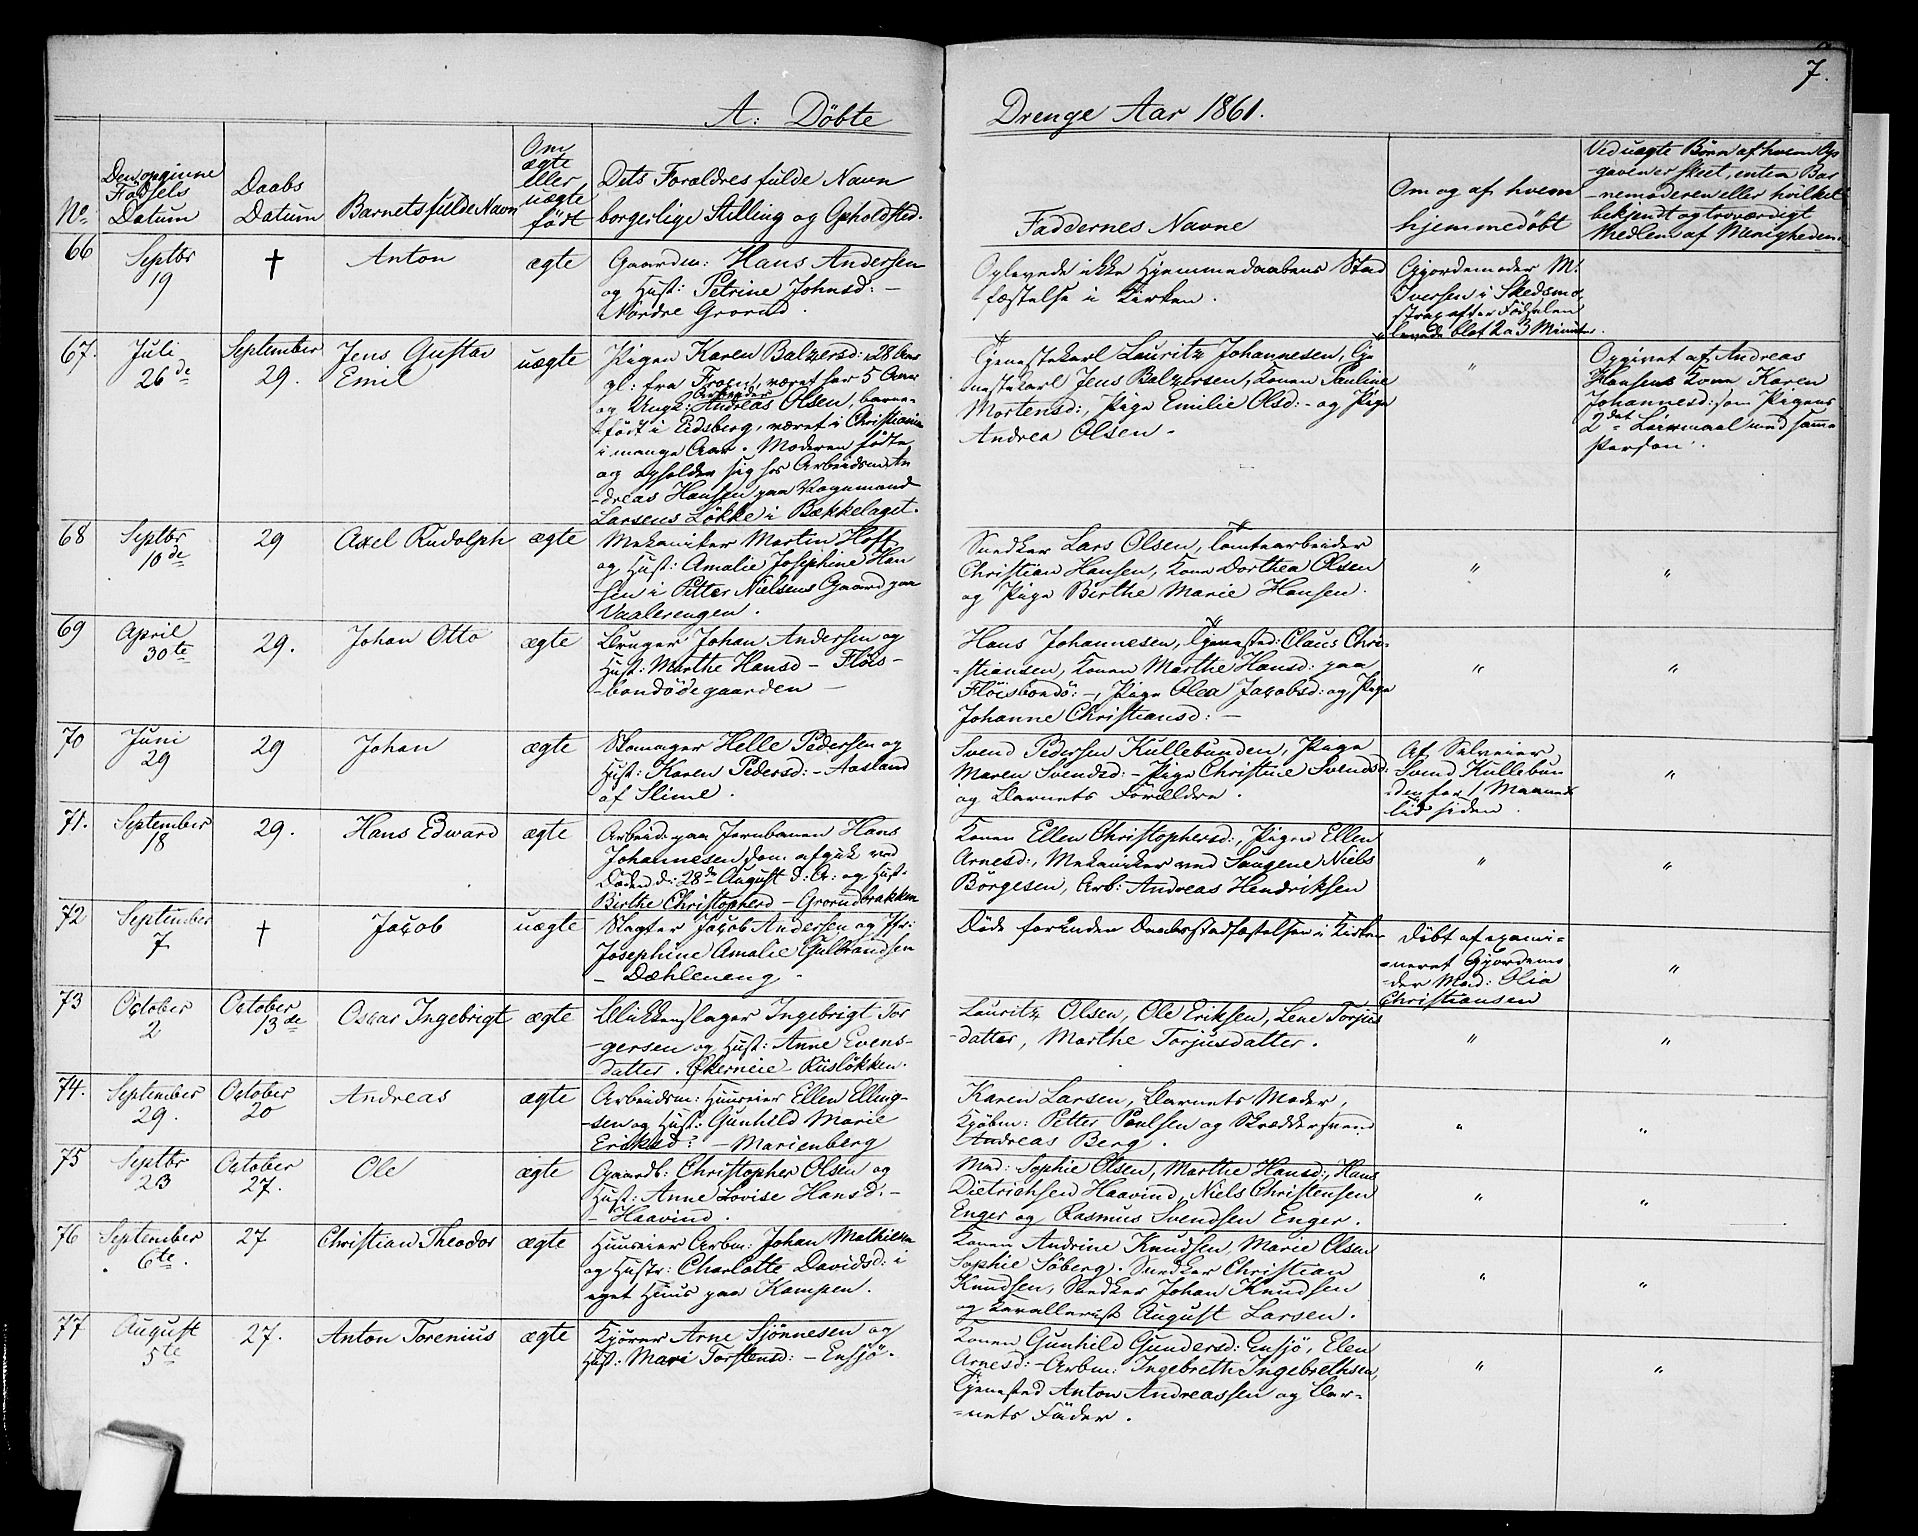 7.
A: Döbte Drenge Aar 1861.
No
Den opgivne
Födsels
Datum
Daabs
Datum
Barnets fulde Navn
Om
ægte
eller
uægte
födt
Dets Forældres fulde Navn
borgerlige Stilling og Opholdsted.
Faddernes Navne
Om og af hvem
hjemmedöbt
Ved uægte Börn af hvem Op-
-gaven er skeet, enten Bar
-nemoderen eller hvilket
bekjendt og troværdigt
Medlem af Menigheden.
66
Septbr
19
†
Anton
ægte
Gaardm: Hans Andersen
og Hust: Petrine Johnsd: –
Nordre Grorud.
Oplevede ikke Hjemmedaabens Stad
fæstelse i Kirken.
Gjordemoder M:
Iversen i Skedsmo
strax efter Födselen
levede blot 2 a 3 Minuter.
67.
Juli
26de
September
29.
Jens Gustav
Emil
uægte
Pigen Karen Balzersd: 28 Aar
gl: fra Frogn, været her 5 Aar
og Ungk: Arbeider Andreas Olsen, barne-
-födt i Eidsberg, været i Christiania
i mange Aar. Moderen födte
og opholder sig hos Arbeidsm: An
-dreas Hansen paa Vognmand
Larsens Lökke i Bækkelaget.
Tjenestekarl Lauritz Johannesen, Tje
nestekarl Jens Balzersen, Konen Pauline
Mortensd:, Pige Emilie Olsd: – og Pige
Andrea Olsen.
"
Opgivet af Andreas
Hansens Kone Karen
Johannesd: som Pigens
2det Leiermaal med samme
Person.
68
Septbr
10de
29
Axel Rudolph
ægte
Mekaniker Martin Hoff
og Hust: Amalie Josephine Han
sen i Petter Nielsens Gaard paa
Vaalerengen.
Snedker Lars Olsen, Tomtearbeider
Christian Hansen, Kone Dorthea Olsen
og Pige Birthe Marie Hansen.
"
"
69
April
30te
29.
Johan Otto
ægte
Bruger Johan Andersen og
Hust: Marthe Hansd – Flöis-
-bondödegaarden –
Hans Johannesen, Tjenested: Claus Chri-
-stiansen, Konen Marthe Hansd: paa
Flöisbondö: –, Pige Olea Jacobsd: og Pige
Johanne Christiansd: –
"
"
70
Juni
29
29
Johan
ægte
Skomager Helle Pedersen og
Hust: Karen Pedersd: – Aasland
af Slime.
Svend Pedersen Kullebunden, Pige
Maren Svendsd: – Pige Christine Svendsd:
og Barnets Forældre.
Af Selveier
Svend Kullebun
den for 1 Maaneds
tid siden.
"
71.
September
18
29.
Hans Edward
ægte
Arbeid: paa Jernbanen Hans
Johannesen som afgik ved
Döden d: 28de August d: A: og Hust-
Birthe Christophersd – Grorudbakken
Konen Ellen Christophersd:, Pigen Ellen
Arnesd:, Mekaniker ved Saugene Niels
Börgesen, Arb: Andreas Hendriksen
"
"
72
September
7
†
Jacob
uægte
Slagter Jacob Andersen og Pfr:
Josephine Amalie Gulbrandsen
– Dæhleneng –
Döde forinden Daabsstadfæstelsen i Kirken
Döbt af exami-
-neret Gjordemo
-der Mad: Olia
Christiansen
"
73
October
2
October
13de
Oscar Ingebrigt
ægte
Blikkenslager Ingebrigt Tor
-gersen og Hust: Anne Evens-
datter. Økerneie Riislökken.
Lauritz Olsen, Ole Eriksen, Lene Torjus
-datter, Marthe Torjusdatter.
"
"
74.
September
29.
October
20
Andreas
ægte
Arbeidsm: Huuseier Ellen Elling-
-sen og Hust: Gunhild Marie
Eriksd? – Marienberg
Karen Larsen, Barnets Moder,
Kjöbm: Petter Paulsen og Skræddersvend
Andreas Berg.
"
"
75
Septbr
23
October
27.
Ole
ægte
Gaardb: Christopher Olsen og
Hust: Anne Lovise Hansd. –
– Haavind.
Mad: Sophie Olsen, Marthe Hansd:, Hans
Dietrichsen Haavind, Niels Christensen
Enger og Rasmus Svendsen Enger.
"
"
76
September
6te.
27
Christian Theodor
ægte
Huuseier Arbm: Johan Mathiesen
og Hustr: Charlotte Davidsd: i
eget Huus paa Kampen.
Konen Andrine Knudsen, Marie Olsen
Sophie Söberg. Snedker Christian
Knudsen, Snedker Johan Knudsen
og Kavallerist August Larsen.
"
"
77
August
5te
27.
Anton Torenius
ægte
Kjörer Arne Sjönnesen og
Hust: Mari Torstensd: – Ensjö.
Konen Gunhild Gundersd: Ensjö, Elen
Arnesd: – Arbm: Ingebreth Ingebrethsen,
Tjenested Anton Andreassen og Bar-
-nets Fader.
"
"